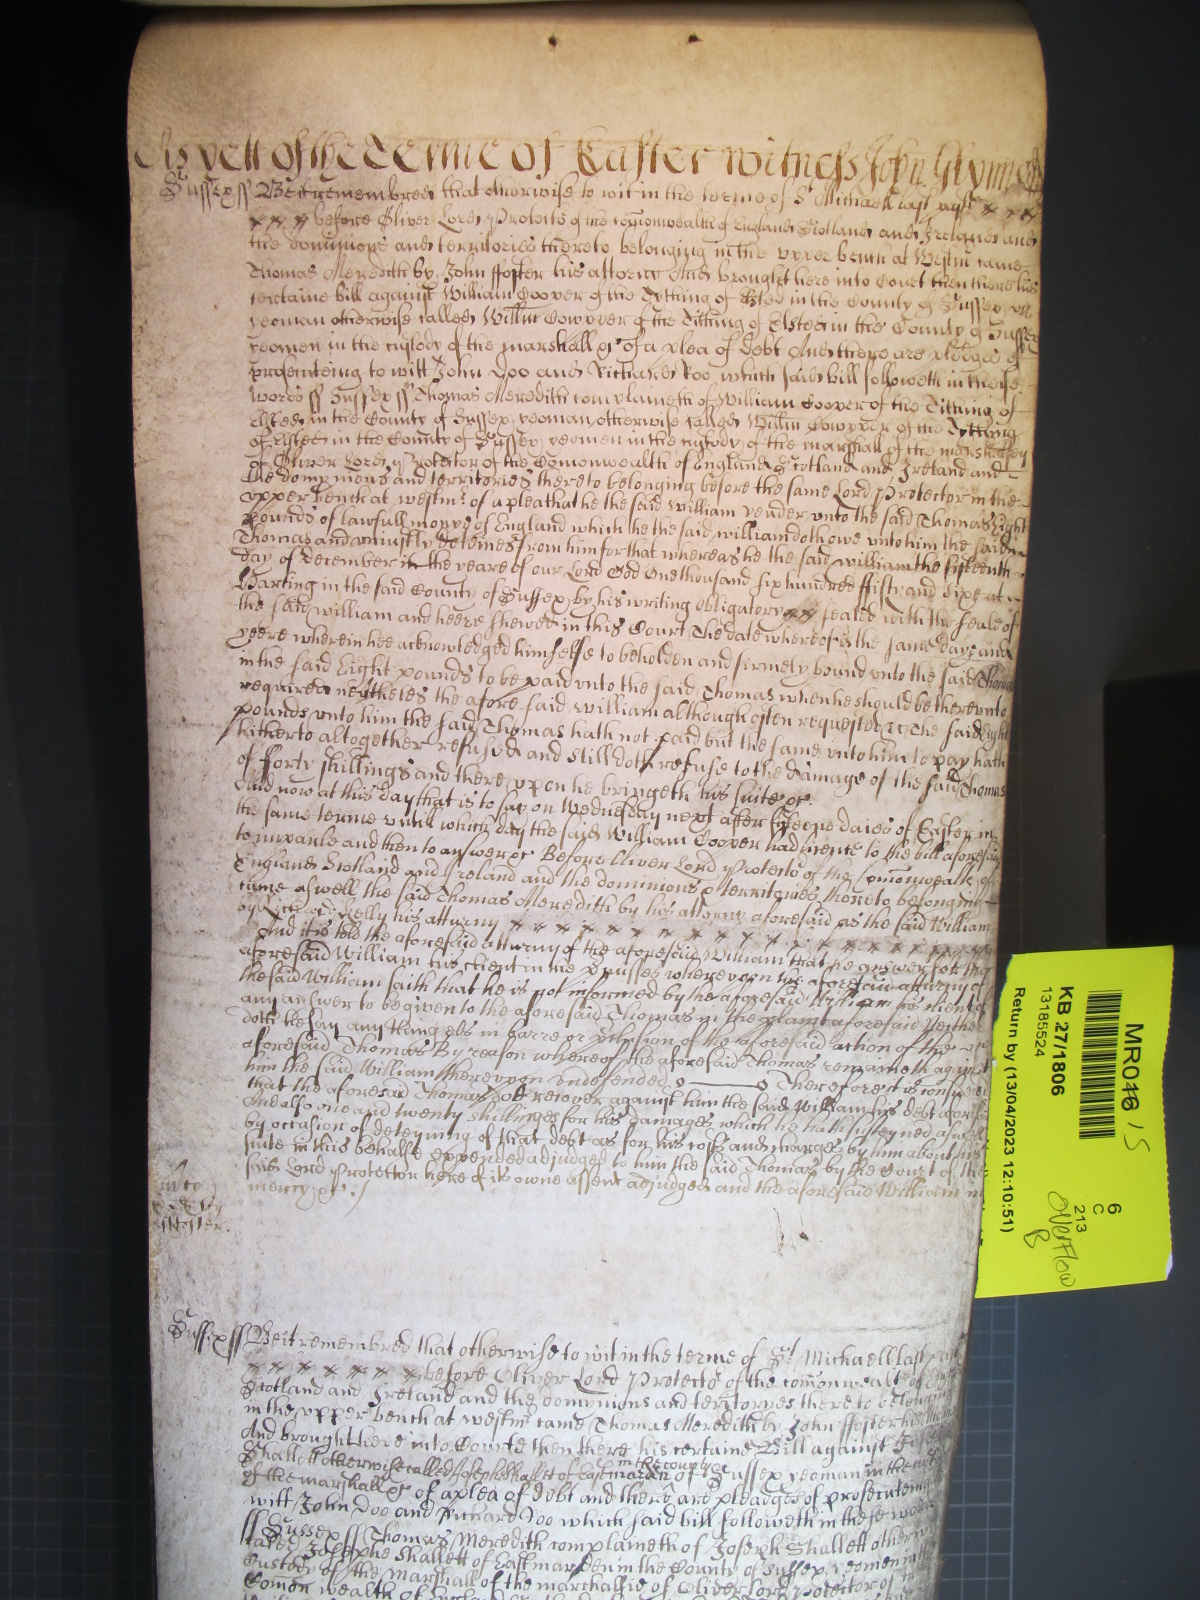 As yett of the Terme of Easter witness John Glynn
Sussex ss Be it remembred that otherwise to wit in the terme of St Michaell last past x x x
x x x before Oliver Lord Protector of the Comonwealth of England Scotland and Ireland and
the dominions and territories thereto belonging in the upper bench at Westm came
Thomas Meredith by John ffoster his attorny And brought here into Court then there his
certaine bill against William Cooper of the Tything of Elsted in the County of Sussex
yeoman otherwise called Willm Cowpper of the Tithing of Elsted in the County of Sussex
yeomen in the custody of the marshall &c of a plea of debt And there are pledges of
prosecuteing to witt John Doo and Richard Roo which said bill followeth in these
words ss Sussex ss Thomas Meredith complaineth of William Cooper of the Tithing of
Elsted in the County of Sussex yeoman otherwise called Willm Cowpper of the Tything
of Elsted in the County of Sussex yeomen in the custody of the marshall of the marshalsey
of Oliver Lord Protector of the Comonwealth of England Scotland and Ireland and
the dominions and territories thereto belonging before the same Lord Protector in the
upper bench at westmr of a plea that he the said William render unto the said Thomas Eight
pounds of lawfull monye of England which he the said william doth owe unto him the said
Thomas and uniustly deteines from him for that whereas he the said william the fifteenth
day of december in the yeare of our Lord God One thousand six hundred ffifty and Sixe at
Harting in the said County of Sussex by his writing obligatory x x sealed with the seale of
the said william and heere shewed in this Court The date whereof is the same day and
yeere wherein hee acknowledged himselfe to beholden and firmely bound unto the said Thomas
in the said Eight pounds to be paid unto the said Thomas when he should be thereunto
required neytheles the afore said william although often requested &c The said Eight
pounds unto him the said Thomas hath not paid but the same unto him to pay hath
hitherto altogether refused and still doth refuse to the damage of the said Thomas
of fforty shillings and there upon he bringeth his suite &c.
And now at this day that is to say on Wednesday next after fifteene daies of Easter in
the same terme untill which day the said William Cooper had licence to the bill aforesaid
to imparle and then to answer &c Before Oliver Lord Protector of the Comonwealth of
England Scotland and Ireland and the dominions & territories thereto belonging
came aswell the said Thomas Meredith by his attorny aforesaid as the said William
by Kelly his atturny x x x x x x x x x x x x x x
And it is told the aforesaid atturny of the aforesaid William that he answer for the
aforesaid William his client in the premisses whereupon the aforesaid atturny of
the said William saith that he is not informed by the aforesaid William his client of
any answer to be given to the aforesaid Thomas in the plaint aforesaid Neither
doth he say any thing els in barre or of the aforesaid action of the
aforesaid Thomas By reason whereof the aforesaid Thomas remaineth against
him the said William thereupon undefended Therefore it is considered
that the aforesaid Thomas doe recover against him the said William his debt aforesaid
And also one and twenty shillinges for his damages which he hath susteyned aswell
by occasion of deteyning of that debt as for his costs and charges by him about his
suite in this behalfe expended adjudged to him the said Thomas by the Court of the
said Lord Protector here of its owne assent adjudged and the aforesaid William in
mercy &c.
Sussex ss Be it remembred that otherwise to wit in the terme of St Michaell last past
x x x x x x x before Oliver Lord Protector of the comonwealth of
Scotland and Ireland and the dominions and territoryes there to belonging
in the upper bench at westmr came Thomas Meredith by John ffoster his
And brought here into Courte then there his certaine Bill against Joseph
Shallett otherwise called Joseph Shallet of Eastmarden in the county of Sussex yeoman in the
of the marshall &c of a plea of debt and there are pleadges of prosecuteing
witt John Doo and Richard Roo which said bill followeth in these words
ss Sussex ss Thomas Meredith complaineth of Joseph Shallett otherwise
called Josephe Shallett of Eastmarden in the County of Sussex yeomen in
Custody of the marshall of the marchalsie of Oliver Lord Protector of
Comonwealth of England
MR046 15
KB 27/1806
13185524
Return by (13/04/2023 12:10:51)
6
C
213
overflow
B